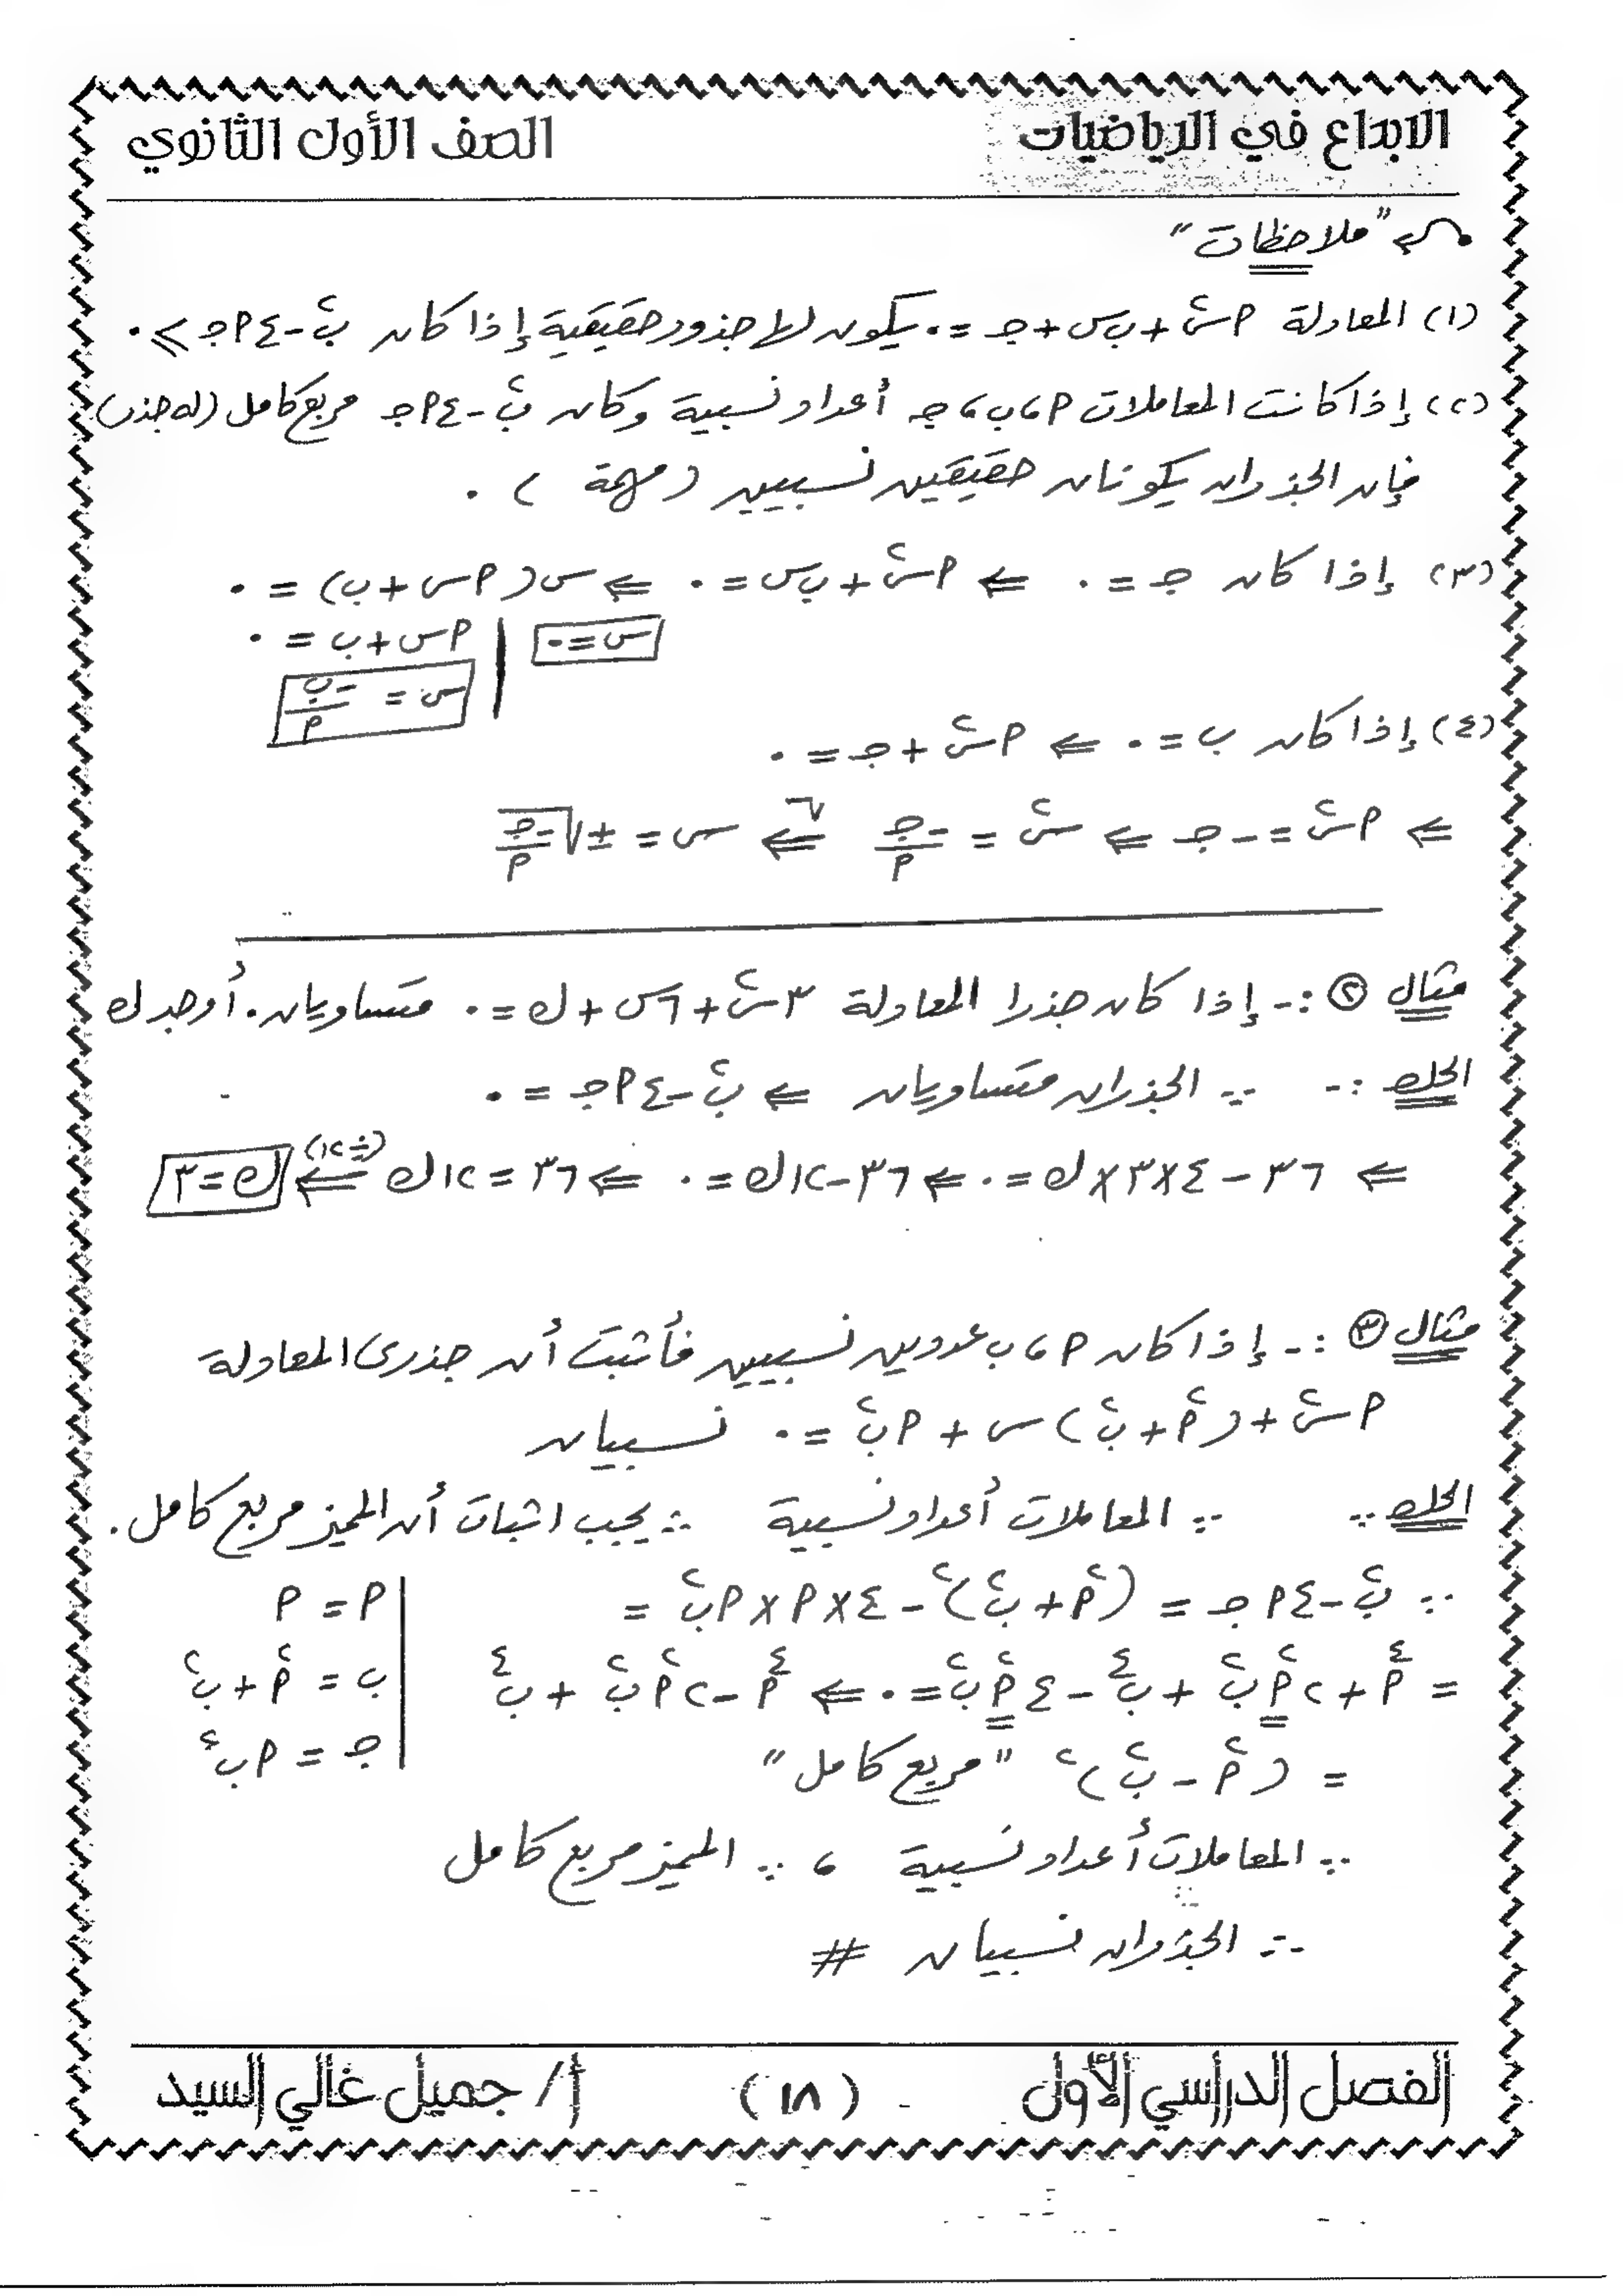 الابداع في الرياضيات
الصف الأول الثانوي
"ملاحظات"
(١) المعادلة ٢س + ب س + جـ = ٠ يكون لها جذور حقيقية إذا كان ب٢ - ٤ م جـ ≥ ٠
(٢) إذا كانت المعاملات م ، ب ، جـ أعداد نسبية وكان ب٢ - ٤ م جـ مربع كامل (له جذر)
فإن الجذران يكونان حقيقين نسبيين (مهمة) .
(٣) إذا كان جـ = ٠ ⇐ م س٢ + ب س = ٠ ⇐ س(م س + ب) = ٠
س = ٠ | م س + ب = ٠
س = -ب/م
(٤) إذا كان ب = ٠ ⇐ م س٢ + جـ = ٠
⇐ م س٢ = -جـ ⇐ س٢ = -جـ/م ⇐ س = ±√(-جـ/م)
مثال ٢ :- إذا كان جذرا المعادلة ٣س٢ + ٦س + ك = ٠ متساويان . أوجد ك
الحل :- ∵ الجذران متساويان ⇐ ب٢ - ٤ م جـ = ٠
⇐ ٣٦ - ٤×٣×ك = ٠ ⇐ ٣٦ - ١٢ك = ٠ ⇐ ٣٦ = ١٢ك ⇐ (÷١٢) ك = ٣
مثال ٣ :- إذا كان م ، ب عددين نسبيين فأثبت أن جذرى المعادلة
م س٢ + (م٢ + ب٢) س + م ب٢ = ٠ نسبيان
الحل :- ∵ المعاملات أعداد نسبية ∴ يجب اثبات أن المميز مربع كامل .
∵ ب٢ - ٤ م جـ = (م٢ + ب٢)٢ - ٤×م×م ب٢ =
م = م
= م٤ + ٢م٢ب٢ + ب٤ - ٤م٢ب٢ = ٠ ⇐ م٤ - ٢م٢ب٢ + ب٤
ب = م٢ + ب٢
= (م٢ - ب٢)٢ "مربع كامل"
جـ = م ب٢
∵ المعاملات أعداد نسبية ، ∵ المميز مربع كامل
∴ الجذران نسبيان #
الفصل الدراسي الأول
( ١٨ )
أ / جميل غالي السيد